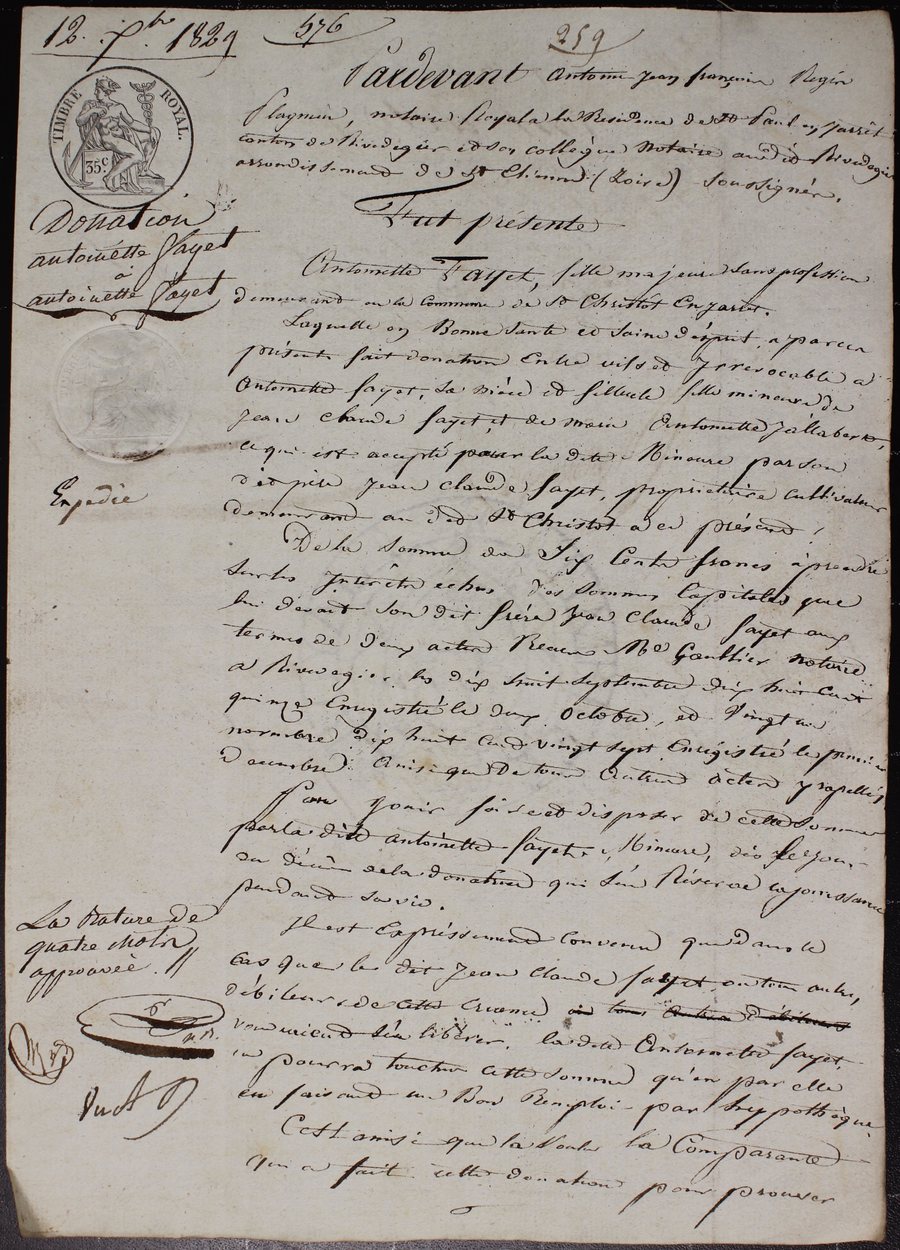 12. 7bre 1829
576
259
TIMBRE ROYAL.
35 c
Donation
antoinette fayet
à
antoinette fayet
Expediée
La Rature de
quatre mots
approuvée. //
Pardevant antoine Jean françois Regis
Plagnieu, notaire Royal a la Residence de St Paul en Jarrêt
canton de Rivedegier et son collègue Notaire audit Rivedegier
arrondissement de St Etienne (Loire) soussignés.
Fut présente
Antoinette Fayet, fille majeure sans profession
demeurant en la Commune de St Christot En Jarret.
Laquelle en Bonne Santé et saine d'esprit, a par ces
présentes fait donation Entre vifs et Irrévocable a
Antoinette fayet, sa nièce et filleule fille mineure de
Jean Claude fayet, et de Antoinette Jallabert,
ce qui est accepté pour la dite Mineure par son
dit père Jean Claude fayet, propriétaire cultivateur
demeurant au dit St Christot a ce présent !
De la somme de Six Cents francs à prendre
sur les Interêts échus des sommes Capitales que
lui devait son dit frère Jean Claude fayet aux
termes de deux actes Recus Me Gaultier notaire
a Rivedegier les dix huit septembre dix huit cent
quinze Enregistré le deux Octobre, et Vingt un
novembre dix huit cent vingt sept Enrégistré le premier
Decembre. Ainsi que De tous Autres actes y rapellés
Pour Jouir faire et disposer de cette somme
par la dite antoinette fayet Mineure, dès le Jour
du décès de la donatrice qui s'en Réserve la jouissance
pendant sa vie.
Il est Expréssement Convenu que dans le
cas que le dit Jean Claude fayet, ou tous autres
débiteurs de cette Créance ou tous autres débiteurs
voudraient s'en libérer, la dite Antoinette fayet,
ne pourra toucher cette somme qu'en par elle
en faisant un Bon Remploi par hypothèque.
C'est ainsi que la Voulu la Comparante
qui a fait cette donation pour prouver